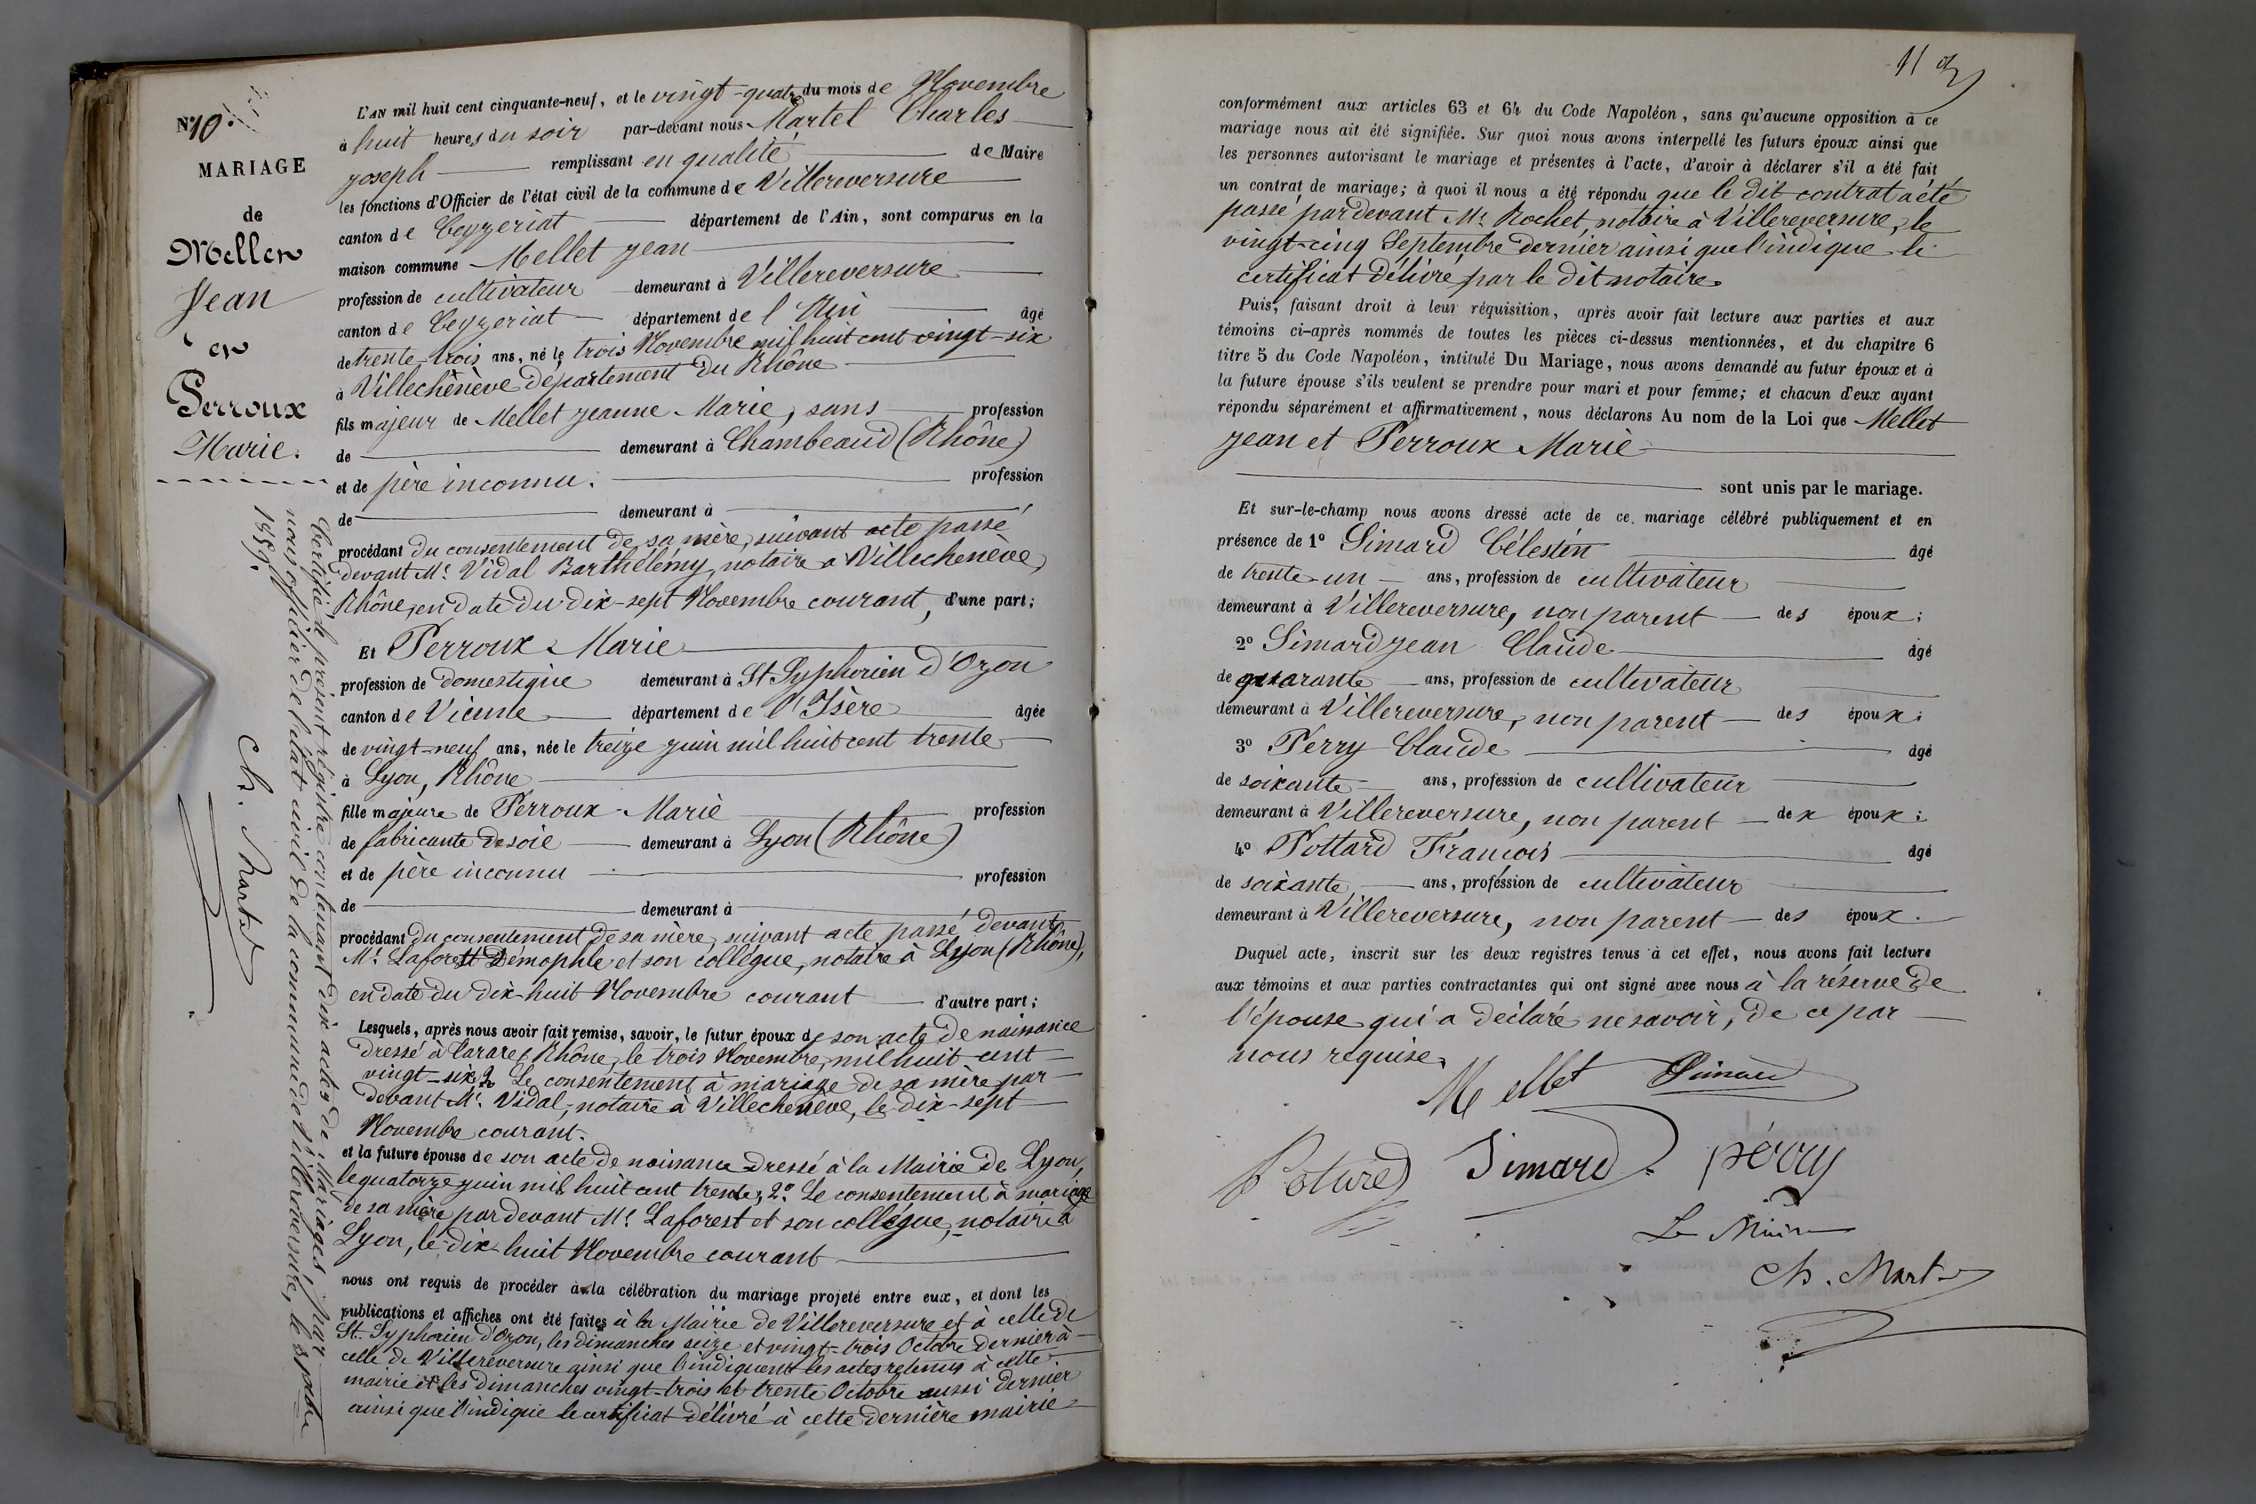 N° 10.
MARIAGE
de
Mellet
Jean
et
Perroux
Marie.
L'AN mil huit cent cinquante-neuf, et le vingt-quatre du mois de Novembre
à huit heures du soir par-devant nous Martel Charles
joseph remplissant en qualité de Maire
les fonctions d'Officier de l'état civil de la commune de Villereversure
canton de Ceyzeriat département de l'Ain, sont comparus en la
maison commune Mellet jean
profession de cultivateur demeurant à Villereversure
canton de Ceyzeriat département de l'Ain âgé
de trente-trois ans, né le trois Novembre mil huit cent vingt-six
à Villechenève département du Rhône
fils majeur de Mellet jeanne Marie, sans profession
de demeurant à Chambeaud (Rhône)
et de père inconnu. profession
de demeurant à
procédant du consentement de sa mère, suivant acte passé
devant Mr. Vidal Barthélémy, notaire a Villechenève,
Rhône, en date du dix-sept Novembre courant, d'une part;
Et Perroux Marie
profession de domestique demeurant à St. Syphorien d'Ozon
canton de Vienne département de l'Isère âgée
de vingt-neuf ans, née le treize juin mil huit cent trente
à Lyon, Rhône
fille majeure de Perroux Marie profession
de fabricante de soie demeurant à Lyon (Rhône)
et de père inconnu profession
de demeurant à
procédant du consentement de sa mère, suivant acte passé devant
Mr. Laforest Démophile et son collègue, notaire à Lyon (Rhône),
en date du dix-huit Novembre courant d'autre part;
Lesquels, après nous avoir fait remise, savoir, le futur époux de son acte de naissance
dressé à Tarare, Rhône, le trois Novembre, mil huit cent
vingt-six; 2° Le consentement à mariage de sa mère par
devant Mr. Vidal, notaire à Villechenève, le dix-sept
Novembre courant.
et la future épouse de son acte de naissance dressé à la Mairie de Lyon,
le quatorze juin mil huit cent trente; 2° Le consentement à mariage
de sa mère par devant Mr. Laforest et son collègue, notaire à
Lyon, le dix-huit Novembre courant
nous ont requis de procéder à la célébration du mariage projeté entre eux, et dont les
publications et affiches ont été faites à la Mairie de Villereversure et à celle de
St. Syphorien d'Ozon, les dimanches seize et vingt-trois Octobre dernier à
celle de Villereversure ainsi que l'indiquent les actes retenus à cette
mairie et les dimanches vingt-trois et trente Octobre aussi dernier
ainsi que l'indique le certificat délivré à cette dernière mairie
Certifié le présent régistre contenant dix actes de Mariages, par
nous officier de l'état civil de la commune de Villereversure, le
1859.
Ch. Martel
conformément aux articles 63 et 64 du Code Napoléon, sans qu'aucune opposition à ce
mariage nous ait été signifiée. Sur quoi nous avons interpellé les futurs époux ainsi que
les personnes autorisant le mariage et présentes à l'acte, d'avoir à déclarer s'il a été fait
un contrat de mariage; à quoi il nous a été répondu que le dit contrat a été
passé par devant Mr. Rochet, notaire à Villereversure, le
vingt-cinq Septembre dernier ainsi que l'indique le
certificat délivré par le dit notaire.
Puis, faisant droit à leur réquisition, après avoir fait lecture aux parties et aux
témoins ci-après nommés de toutes les pièces ci-dessus mentionnées, et du chapitre 6
titre 5 du Code Napoléon, intitulé Du Mariage, nous avons demandé au futur époux et à
la future épouse s'ils veulent se prendre pour mari et pour femme; et chacun d'eux ayant
répondu séparément et affirmativement, nous déclarons Au nom de la Loi que Mellet
jean et Perroux Marie
sont unis par le mariage.
Et sur-le-champ nous avons dressé acte de ce mariage célébré publiquement et en
présence de 1° Simard Célestin âgé
de trente-un ans, profession de cultivateur
demeurant à Villereversure, non parent des époux;
2° Simard jean Claude âgé
de quarante ans, profession de cultivateur
demeurant à Villereversure, non parent des époux;
3° Perry Claude âgé
de soixante ans, profession de cultivateur
demeurant à Villereversure, non parent des époux;
4° Pottard François âgé
de soixante ans, profession de cultivateur
demeurant à Villereversure, non parent des époux.
Duquel acte, inscrit sur les deux registres tenus à cet effet, nous avons fait lecture
aux témoins et aux parties contractantes qui ont signé avec nous à la réserve de
l'épouse qui a déclaré ne savoir, de ce par
nous requise.
Mellet Simard
Simard pérry
Le Maire
Ch. Martel